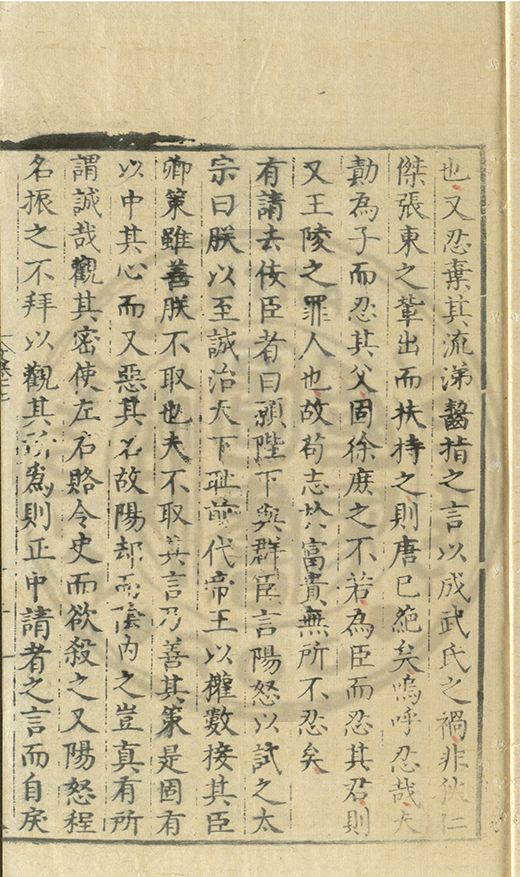 也又忍棄其流涕齧指之言以成武氏之禍非狄仁
傑張柬之輩出而扶持之則唐已絶矣嗚呼忍哉夫
勣為子而忍其父固徐庶之不若為臣而忍其君則
又王陵之罪人也故苟志扵富貴無所不忍矣
有請去佞臣者曰願陛下與群臣言陽怒以試之太
宗曰朕以至誠治天下耻前代帝王以權數接其臣
卿策雖善朕不取也夫不取其言乃善其策是固有
以中其心而又惡其名故陽却而陰内之豈真有所
謂誠哉觀其密使左右賂令史而欲殺之又陽怒程
名振之不拜以觀其所為則正中請者之言而自戾